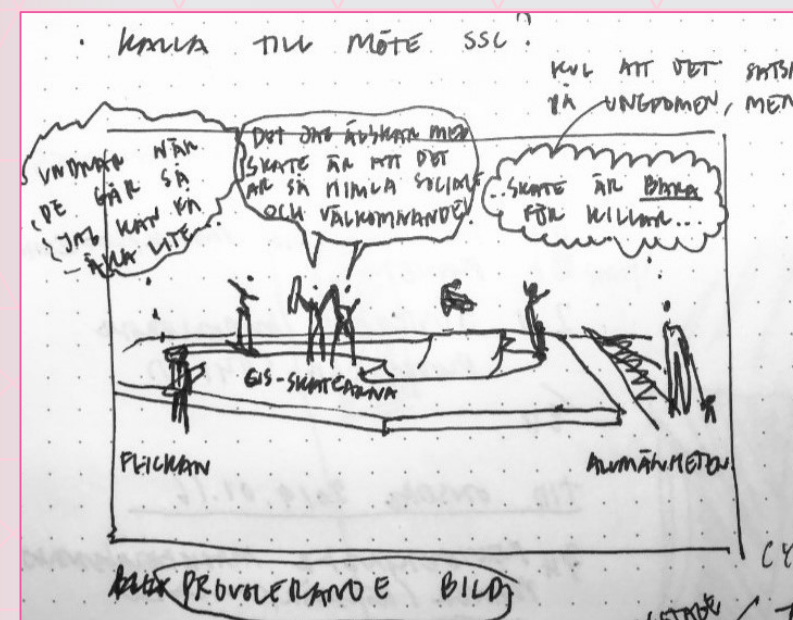 · KALLA TILL MÖTE SSC?
KUL ATT DET SATSA
PÅ UNGDOMEN, MEN
UNDRAR NÄR
DE GÅR SÅ
JAG KAN FÅ
ÅKA LITE...
DET JAG ÄLSKAR MED
SKATE ÄR ATT DET
ÄR SÅ HIMLA SOCIALT
OCH VÄLKOMNANDE!
...SKATE ÄR BARA
FÖR KILLAR...
GIS-SKATEARNA
FLICKAN
ALLMÄNHETEN
PROVOCERANDE BILD